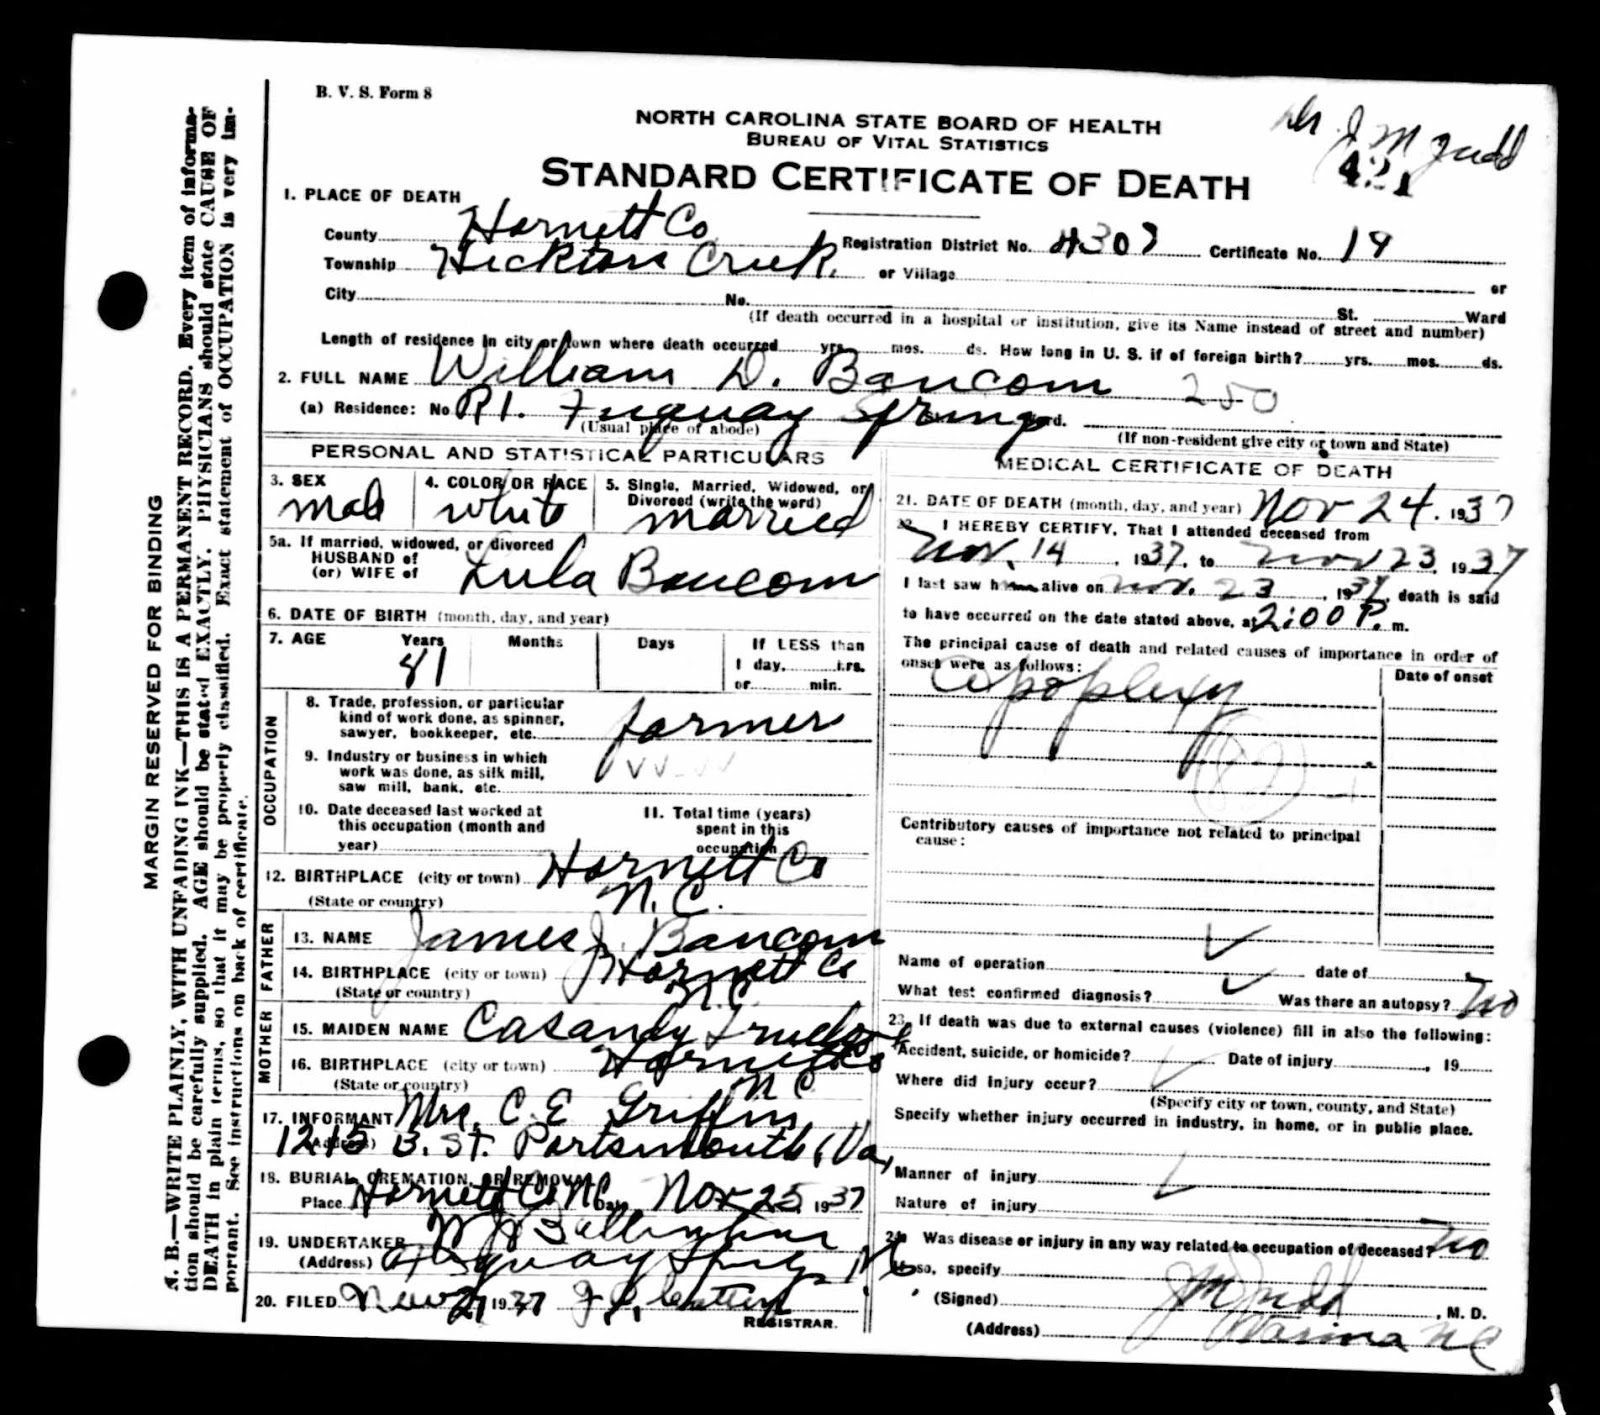 B. V. S. Form 8
NORTH CAROLINA STATE BOARD OF HEALTH
BUREAU OF VITAL STATISTICS
STANDARD CERTIFICATE OF DEATH
Dr. J M Judd
421
1. PLACE OF DEATH
County Harnett Co Registration District No. 4307 Certificate No. 19
Township Hecktors Creek or Village or
City No. St. Ward
(If death occurred in a hospital or institution, give its Name instead of street and number)
Length of residence in city or town where death occurred yrs. mos. ds. How long in U. S. if of foreign birth? yrs. mos. ds.
2. FULL NAME William D. Baucom 250
(a) Residence: No. R1. Fuquay Springs Ward.
(Usual place of abode) (If non-resident give city or town and State)
PERSONAL AND STATISTICAL PARTICULARS
3. SEX 4. COLOR OR RACE 5. Single, Married, Widowed, or
Divorced (write the word)
male white married
5a. If married, widowed, or divorced
HUSBAND of
(or) WIFE of Lula Baucom
6. DATE OF BIRTH (month, day, and year)
7. AGE Years Months Days If LESS than
81 1 day, hrs.
or min.
OCCUPATION
8. Trade, profession, or particular
kind of work done, as spinner,
sawyer, bookkeeper, etc. farmer
9. Industry or business in which
work was done, as silk mill,
saw mill, bank, etc.
10. Date deceased last worked at
this occupation (month and
year)
11. Total time (years)
spent in this
occupation
12. BIRTHPLACE (city or town) Harnett Co
(State or country) N. C.
FATHER
13. NAME James J. Baucom
14. BIRTHPLACE (city or town) Harnett Co
(State or country) N.C.
MOTHER
15. MAIDEN NAME Casandy
16. BIRTHPLACE (city or town) Harnett Co
(State or country) N C
17. INFORMANT Mrs. C. E Griffin
(Address) 1215 B. St. Portsmouth, Va,
18. BURIAL, CREMATION, OR REMOVAL
Place Harnett Co NC Date Nov 25, 1937
19. UNDERTAKER
(Address) Fuquay Springs NC
20. FILED 27 1937
REGISTRAR.
MEDICAL CERTIFICATE OF DEATH
21. DATE OF DEATH (month, day, and year) Nov 24, 1937
22. I HEREBY CERTIFY, That I attended deceased from
Nov. 14, 1937, to Nov 23, 1937
I last saw him alive on Nov. 23, 1937, death is said
to have occurred on the date stated above, at 2:00 P. m.
The principal cause of death and related causes of importance in order of
onset were as follows: Date of onset
Apoplexy
Contributory causes of importance not related to principal
cause:
Name of operation date of
What test confirmed diagnosis? Was there an autopsy? no
23. If death was due to external causes (violence) fill in also the following:
Accident, suicide, or homicide? Date of injury , 19
Where did injury occur?
(Specify city or town, county, and State)
Specify whether injury occurred in industry, in home, or in public place.
Manner of injury
Nature of injury
24. Was disease or injury in any way related to occupation of deceased? no
If so, specify
(Signed) J M Judd , M. D.
(Address) Varina NC
MARGIN RESERVED FOR BINDING
N. B.—WRITE PLAINLY, WITH UNFADING INK—THIS IS A PERMANENT RECORD. Every item of informa-
tion should be carefully supplied. AGE should be stated EXACTLY. PHYSICIANS should state CAUSE OF
DEATH in plain terms, so that it may be properly classified. Exact statement of OCCUPATION is very im-
portant. See instructions on back of certificate.